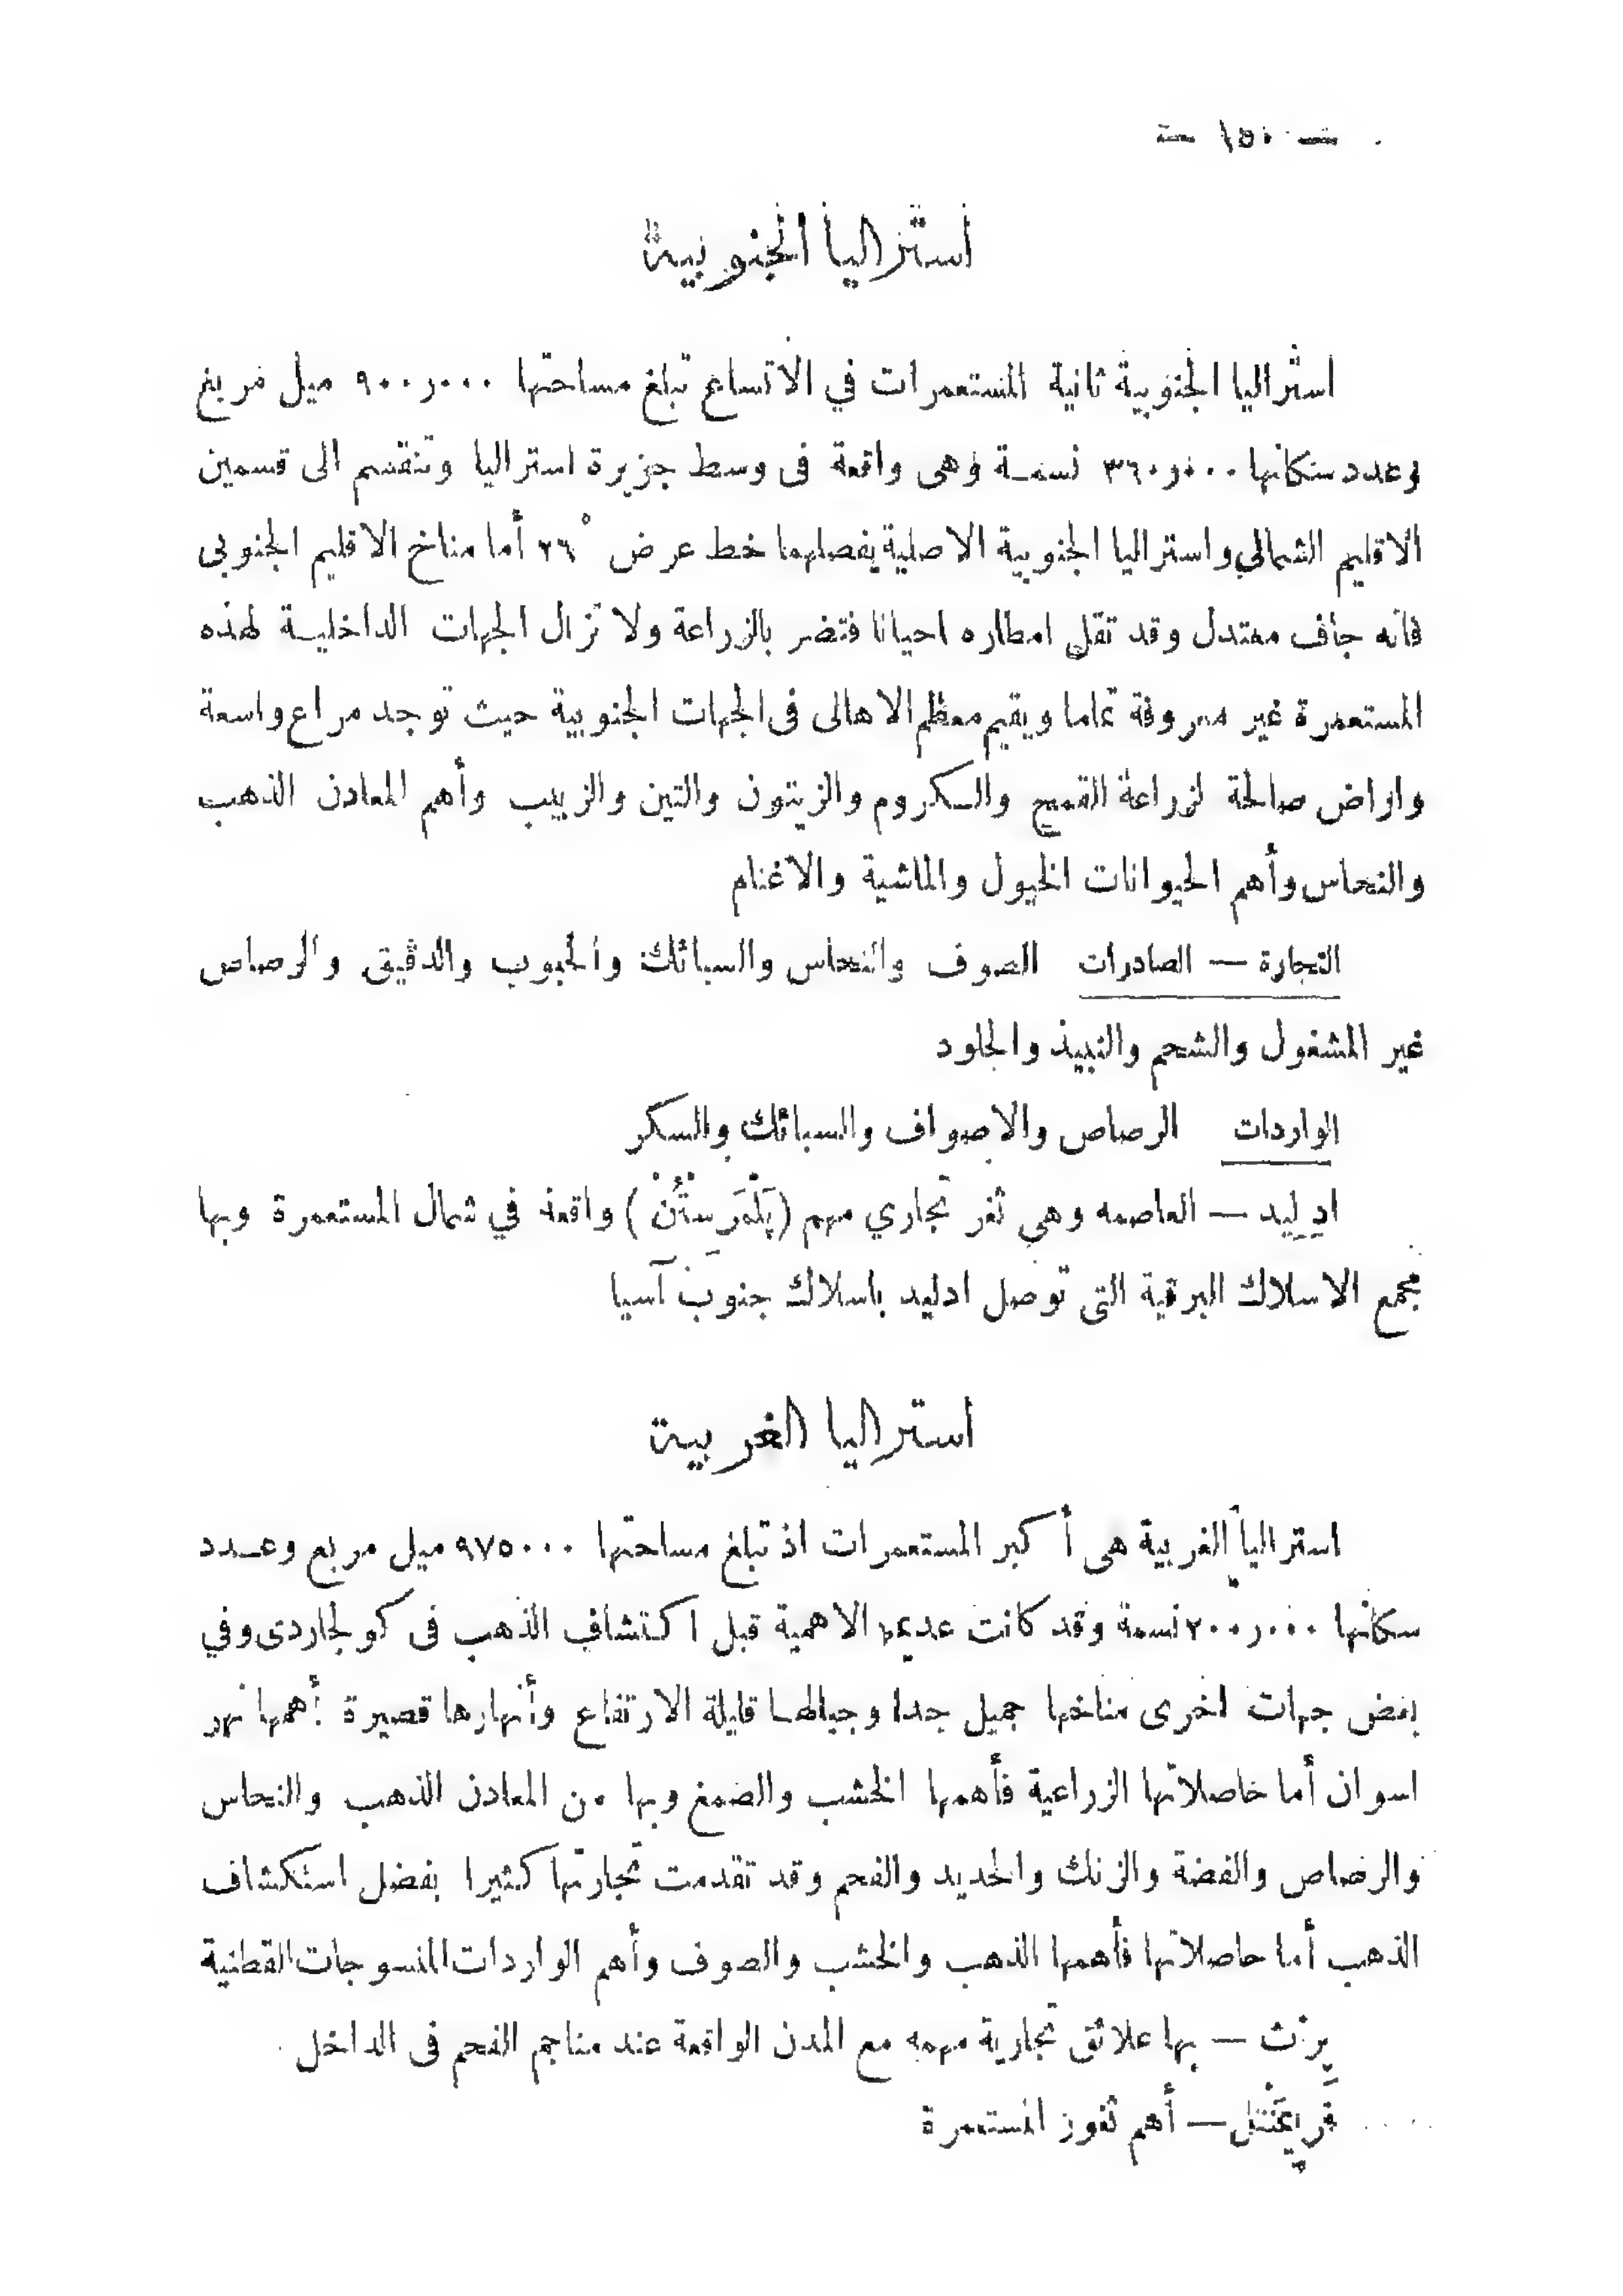 — ١٥٠ —
استراليا الجنوبية
استراليا الجنوبية ثانية المستعمرات في الاتساع تبلغ مساحتها ٩٠٠٫٠٠٠ ميل مربع
وعدد سكانها ٣٦٠٫٠٠٠ نسمة وهى واقعة فى وسط جزيرة استراليا وتنقسم الى قسمين
الاقليم الشمالي واستراليا الجنوبية الاصلية يفصلهما خط عرض ٢٦° أما مناخ الاقليم الجنوبى
فانه جاف معتدل وقد تقل امطاره احيانا فتضر بالزراعة ولا تزال الجهات الداخلية لهذه
المستعمرة غير معروفة تماما ويقيم معظم الاهالى فى الجهات الجنوبية حيث توجد مراع واسعة
واراض صالحة لزراعة القمح والكروم والزيتون والتين والزبيب وأهم المعادن الذهب
والنحاس وأهم الحيوانات الخيول والماشية والاغنام
التجارة — الصادرات الصوف والنحاس والسبائك والحبوب والدقيق والرصاص
غير المشغول والشحم والنبيذ والجلود
الواردات الرصاص والاصواف والسبائك والسكر
ادِلِيد — العاصمه وهي ثغر تجاري مهم (پَلْمَرِسْتُنْ) واقعة في شمال المستعمرة وبها
مجمع الاسلاك البرقية التى توصل ادليد باسلاك جنوب آسيا
استراليا الغربية
استراليا الغربية هى أكبر المستعمرات اذ تبلغ مساحتها ٩٧٥٠٠٠ ميل مربع وعدد
سكانها ٢٠٠٫٠٠٠ نسمة وقد كانت عديمة الاهمية قبل اكتشاف الذهب فى كولجاردى وفي
بعض جهات اخرى مناخها جميل جدا وجبالها قليلة الارتفاع وأنهارها قصيرة أهمها نهر
اسوان أما حاصلاتها الزراعية فأهمها الخشب والصمغ وبها من المعادن الذهب والنحاس
والرصاص والفضة والزنك والحديد والفحم وقد تقدمت تجارتها كثيرا بفضل استكشاف
الذهب أما حاصلاتها فأهمها الذهب والخشب والصوف وأهم الواردات المنسوجات القطنية
پِرْث — بها علائق تجارية مهمه مع المدن الواقعة عند مناجم الفحم فى الداخل
— أهم ثغور المستعمرة